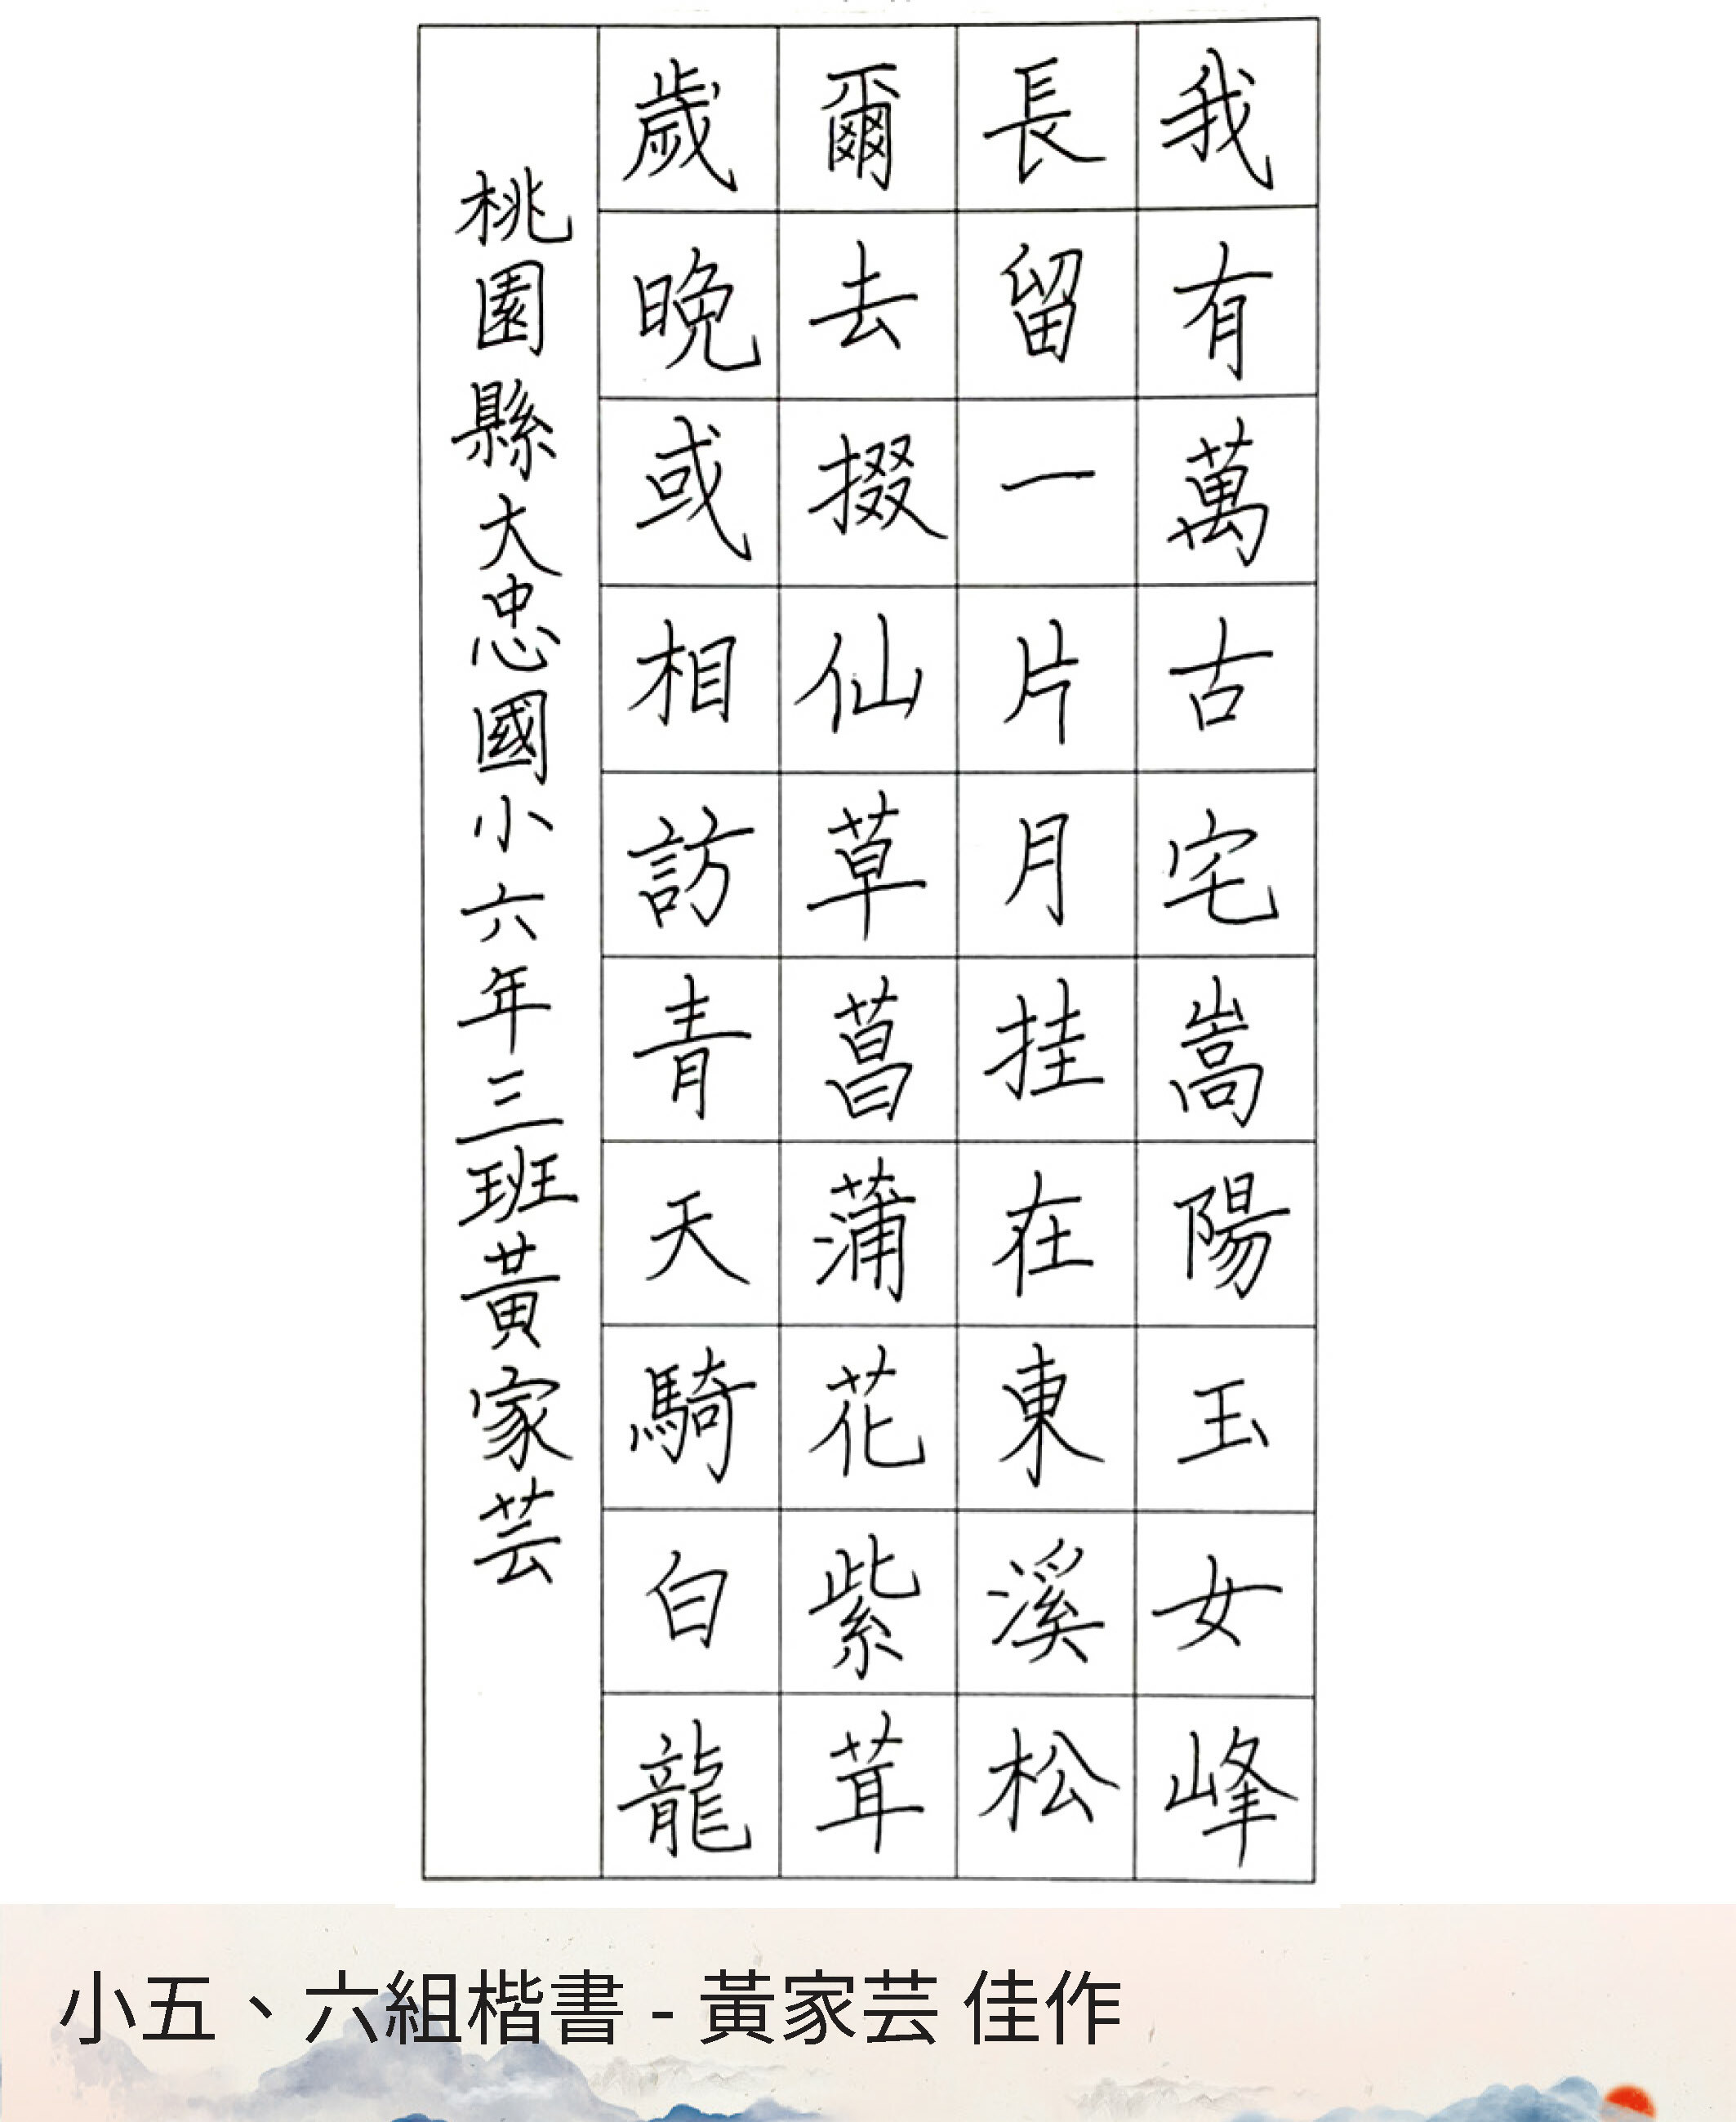 我有萬古宅嵩陽玉女峰
長留一片月挂在東溪松
爾去掇仙草菖蒲花紫茸
歲晚或相訪青天騎白龍
桃園縣大忠國小六年三班黃家芸
小五、六組楷書 - 黃家芸 佳作